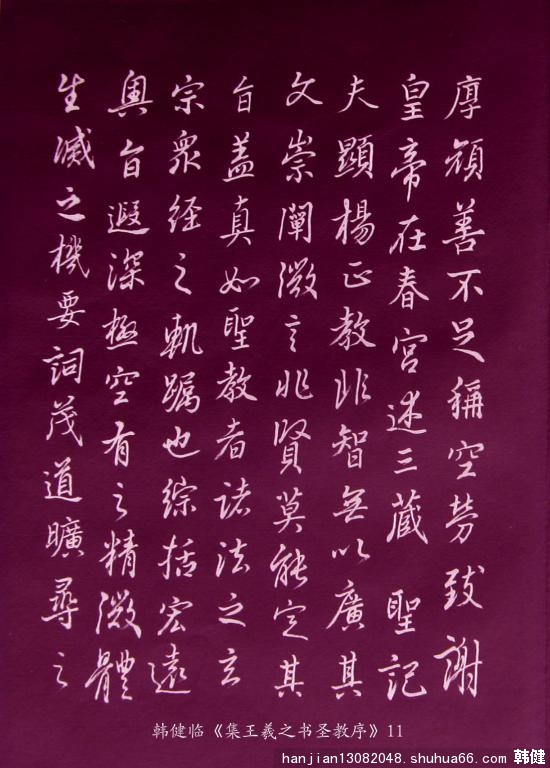 厚顏善不足稱空勞致謝
皇帝在春宮述三藏聖記
夫顯楊正教非智無以廣其
文崇闡微言非賢莫能定其
旨蓋真如聖教者諸法之玄
宗眾經之軌躅也綜括宏遠
奧旨遐深極空有之精微體
生滅之機要詞茂道曠尋之
韩健临《集王羲之书圣教序》11
hanjian13082048.shuhua66.com 韩健